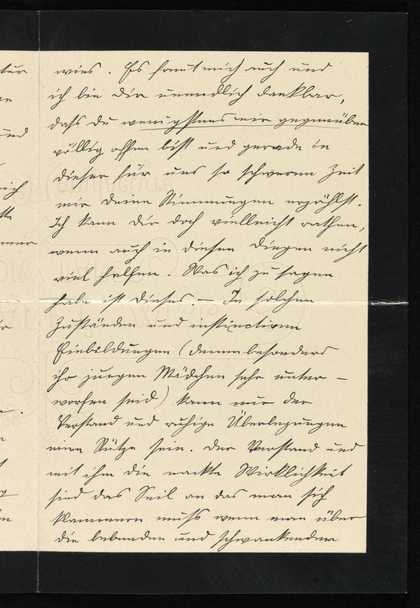 wies. Es freut mich auch und
ich bin dir unendlich dankbar,
dass du wenigstens mir gegenüber
völlig offen bist und gerade in
dieser für uns so schweren Zeit
mir deine Stimmungen erzählst.
Ich kann dir doch vielleicht rathen,
wenn auch in diesen Dingen nicht
viel helfen. Was ich zu sagen
habe ist dieses, – In solchen
Zuständen und instinctiven
Einbildungen (denen besonders
ihr jungen Mädchen sehr unter-
worfen seid) kann nur der
Verstand und ruhige Überlegungen
eine Stütze sein. Der Verstand und
mit ihm die nackte Wirklichkeit
sind das Seil an das man sich
klammern muss wenn man über
die bebenden und schwankenden